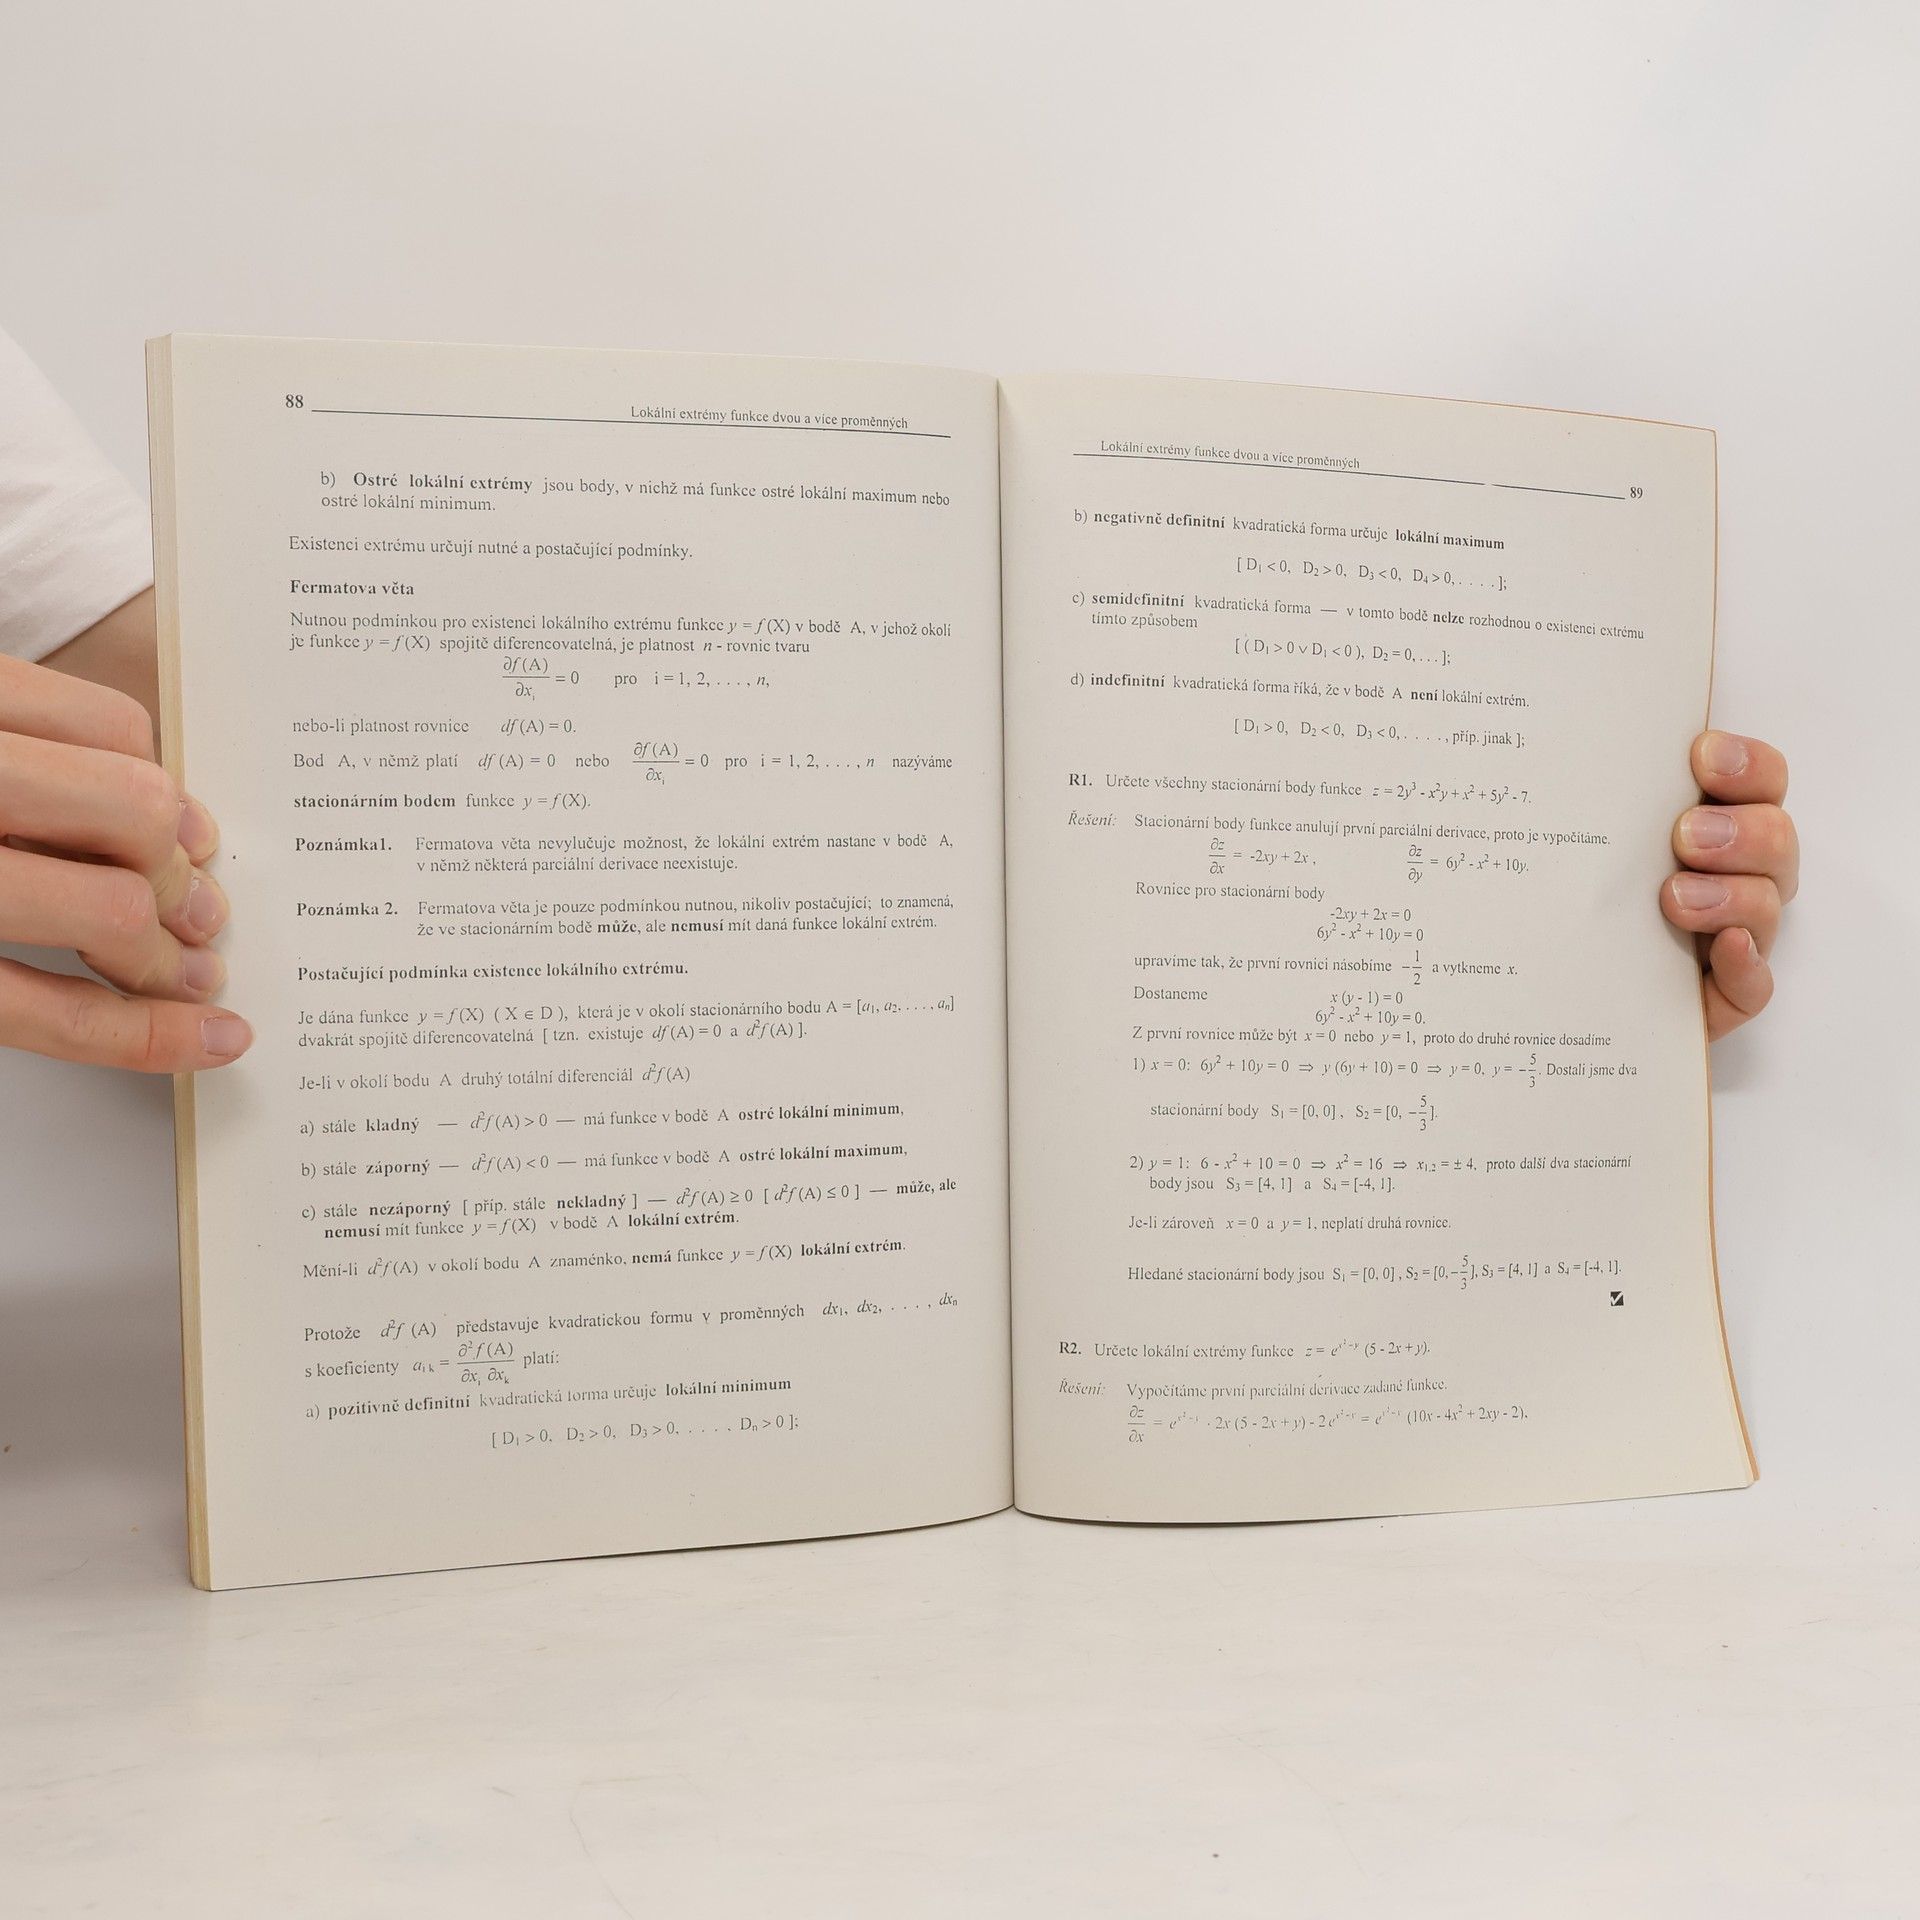 88
Lokální extrémy funkce dvou a více proměnných
b) Ostré lokální extrémy jsou body, v nichž má funkce ostré lokální maximum nebo
ostré lokální minimum.
Existenci extrému určují nutné a postačující podmínky.
Fermatova věta
Nutnou podmínkou pro existenci lokálního extrému funkce y = f (X) v bodě A, v jehož okolí
je funkce y = f (X) spojitě diferencovatelná, je platnost n - rovnic tvaru
∂f (A)/∂xᵢ = 0 pro i = 1, 2, . . . , n,
nebo-li platnost rovnice df (A) = 0.
Bod A, v němž platí df (A) = 0 nebo ∂f (A)/∂xᵢ = 0 pro i = 1, 2, . . . , n nazýváme
stacionárním bodem funkce y = f (X).
Poznámka1. Fermatova věta nevylučuje možnost, že lokální extrém nastane v bodě A,
v němž některá parciální derivace neexistuje.
Poznámka 2. Fermatova věta je pouze podmínkou nutnou, nikoliv postačující; to znamená,
že ve stacionárním bodě může, ale nemusí mít daná funkce lokální extrém.
Postačující podmínka existence lokálního extrému.
Je dána funkce y = f (X) ( X ∈ D ), která je v okolí stacionárního bodu A = [a₁, a₂, . . . , aₙ]
dvakrát spojitě diferencovatelná [ tzn. existuje df (A) = 0 a d²f (A) ].
Je-li v okolí bodu A druhý totální diferenciál d²f (A)
a) stále kladný — d²f (A) > 0 — má funkce v bodě A ostré lokální minimum,
b) stále záporný — d²f (A) < 0 — má funkce v bodě A ostré lokální maximum,
c) stále nezáporný [ příp. stále nekladný ] — d²f (A) ≥ 0 [ d²f (A) ≤ 0 ] — může, ale
nemusí mít funkce y = f (X) v bodě A lokální extrém.
Mění-li d²f (A) v okolí bodu A znaménko, nemá funkce y = f (X) lokální extrém.
Protože d²f (A) představuje kvadratickou formu v proměnných dx₁, dx₂, . . . , dxₙ
s koeficienty aᵢₖ = ∂²f (A)/∂xᵢ ∂xₖ platí:
a) pozitivně definitní kvadratická forma určuje lokální minimum
[ D₁ > 0, D₂ > 0, D₃ > 0, . . . . , Dₙ > 0 ];
Lokální extrémy funkce dvou a více proměnných
89
b) negativně definitní kvadratická forma určuje lokální maximum
[ D₁ < 0, D₂ > 0, D₃ < 0, D₄ > 0, . . . . ];
c) semidefinitní kvadratická forma — v tomto bodě nelze rozhodnou o existenci extrému
tímto způsobem
[ ( D₁ > 0 ∨ D₁ < 0 ), D₂ = 0, . . . ];
d) indefinitní kvadratická forma říká, že v bodě A není lokální extrém.
[ D₁ > 0, D₂ < 0, D₃ < 0, . . . . , příp. jinak ];
R1. Určete všechny stacionární body funkce z = 2y³ - x²y + x² + 5y² - 7.
Řešení: Stacionární body funkce anulují první parciální derivace, proto je vypočítáme.
∂z/∂x = -2xy + 2x , ∂z/∂y = 6y² - x² + 10y.
Rovnice pro stacionární body
-2xy + 2x = 0
6y² - x² + 10y = 0
upravíme tak, že první rovnici násobíme -1/2 a vytkneme x.
Dostaneme x (y - 1) = 0
6y² - x² + 10y = 0.
Z první rovnice může být x = 0 nebo y = 1, proto do druhé rovnice dosadíme
1) x = 0: 6y² + 10y = 0 ⇒ y (6y + 10) = 0 ⇒ y = 0, y = -5/3. Dostali jsme dva
stacionární body S₁ = [0, 0] , S₂ = [0, -5/3].
2) y = 1: 6 - x² + 10 = 0 ⇒ x² = 16 ⇒ x₁,₂ = ± 4, proto další dva stacionární
body jsou S₃ = [4, 1] a S₄ = [-4, 1].
Je-li zároveň x = 0 a y = 1, neplatí druhá rovnice.
Hledané stacionární body jsou S₁ = [0, 0] , S₂ = [0, -5/3], S₃ = [4, 1] a S₄ = [-4, 1].
R2. Určete lokální extrémy funkce z = e^(x²-y) (5 - 2x + y).
Řešení: Vypočítáme první parciální derivace zadané funkce.
∂z/∂x = e^(x²-y) · 2x (5 - 2x + y) - 2 e^(x²-y) = e^(x²-y) (10x - 4x² + 2xy - 2),